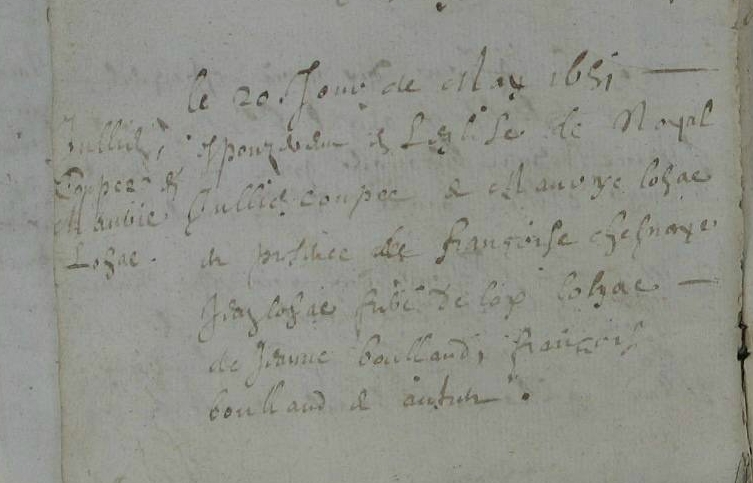 le 20 Jour de May 1651
Jullien
Coupee &
Mauvie
Lohac .
Espouzerent en Leglise de Noyal
Jullien coupee & Mauvye lohac
en presence de françoise chesnaye
Jean lohac
lohac
de Jeanne boulland, françois
boulland & autres .